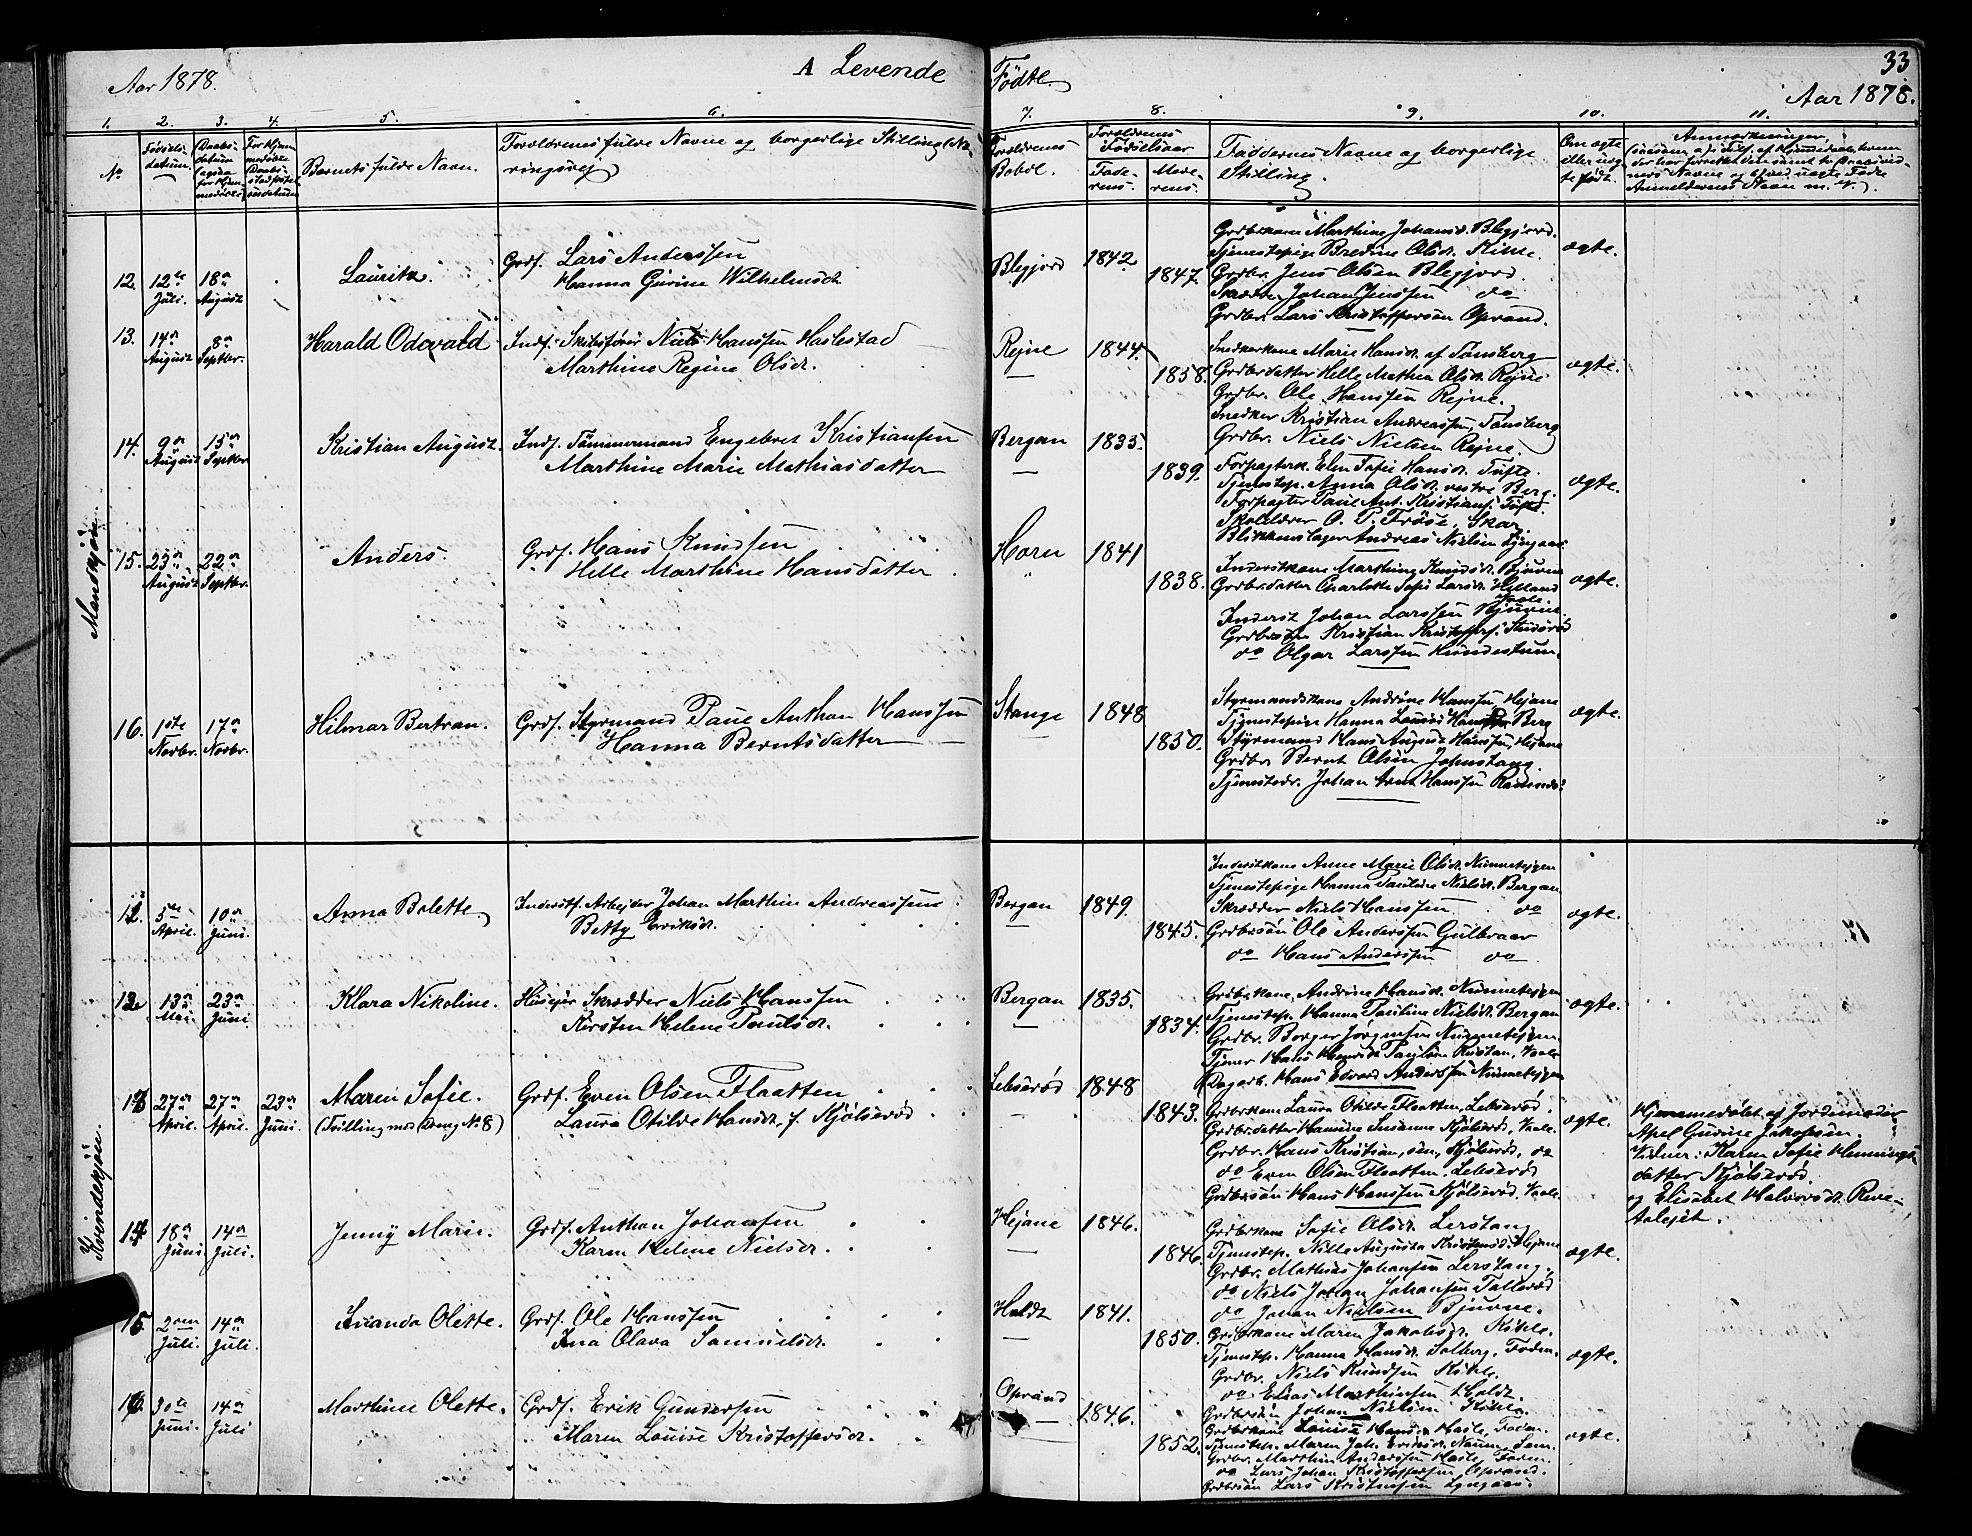 Aar 1878.
A Levende
Födte.
33
Aar 1878.
1. 2. 3. 4. 5. 6. 7. 8. 9. 10. 11.
No
Födsels-
datum.
Daabs-
datum
Barnets fulde Navn.
Forældrenes fulde Navne og borgerlige Stilling (Næ-
ringsvei)
Forældrenes
Bopæl.
Forældrenes
Födselsaar
Fade-
rens.
Mode-
rens.
Faddernes Navne og borgerlige
Stilling.
Om ægte
eller uæg-
te födt.
Anmærkninger
Mandkjön.
12. 12te Juli. 18de August Lauritz. Grdf. Lars Anderssen
Hanna Gurine Wilhelmsdt.
Blegjord 1842 1847.
Grdbrkone Marthine Johansd. Blegjord.
Tjenestepige Bredine Olsdt. Kihle.
Grdbr. Jens Olsen Blegjord.
Skrædder Johan Jenssen do
Grdbr. Lars Kristoffersen Oprand.
ægte.
13. 14de August 8de Septbr. Harald Odevald Inds. Skibsförer Niels Hanssen Haslestad
Marthine Regine Olsdt.
Rejne 1844. 1858.
Snedkerkone Marie Hansdt. af Tönsberg
Grdbrdatter Helle Mathea Olsdt. Rejne
Grdbr. Ole Hanssen Rejne.
Snedker Kristian Andreassen, Tönsberg
Grdbr. Niels Nielsen Rejne.
ægte.
14. 9de August 15de Septbr Kristian August. Inds. Tömmermand Engebret Kristiansen
Marthine Marie Mathiasdatter
Bergan 1835. 1839.
Forpagterk. Elen Sofie Hansdt. Tufte.
Tjenestep. Anna Olsdt. vestre Berg.
Forpagter Paul Ant. Kristians. Tufte
Skolelærer O. P. Fröse, Skar.
Blikkenslager Andreas Nielsen Lyngaas.
ægte.
15. 25de August 22de Septbr. Anders. Grdf. Hans Knudsen
Helle Marthine Hansdatter
Horn 1841 1838.
Inderstkone Marthine Knudsdt. Bjuvne
Grdbr.datter Charlotte Sofie Larsdt. Helland
Vaale.
Inderst Johan Larssen Bjuvne.
Grdbrsön Kristian Kristoffers.
do Olgar Larssen
ægte.
16. 1ste Novbr. 17de Novbr. Hilmar Bertran. Grdf. Styrmand Paul Anthon Hanssen
Hanna Berntsdatter
Stange 1848 1850.
Styrmandskone Andrine Hanssen, Hejane
Tjenestepige Hanna Lovise Berg
Styrmand Hans August Hanssen, Hejane
Grdbr. Bernt Olsen Johnstang.
Tjenestedr. Johan Arnt Hanssen
ægte.
Kvindekjön.
12. 5te April. 10de Juni. Anna Bolette. Inderstf. Arbejder Johan Marthin Andreassen
Betty Eriksdt.
Bergan 1849. 1845.
Inderstkone Anne Marie Olsdt. Nunnetejgen
Tjenestepige Hanna Pauline Nielsdt. Bergan
Skrædder Niels Hanssen do
Grdbrsön Ole Anderssen Gulbraar
do Hans Anderssen do
ægte.
13. 13de Mai. 23de Juni Klara Nikoline. Husejer Skrædder Niels Hanssen
Kirsten Helene Paulsdt.
Bergan 1835. 1834.
Grdbrkone Andrine Hansdt. Nunnetejgen
Tjenestep. Hanna Pauline Nielsdt. Bergan
Grdbr. Borger Jörgensen Nunnetejgen.
Tjener Hans Henrik Paulsen Vaale
Dagarb. Hans Edvard Anderssen Nunnetejgen
ægte.
13. 27de April. 27de April. 23de Juni. Maren Sofie.
(Tvilling med Dreng No 8)
Grdf. Even Olsen Flaatten
Laura Otilde Hansdt. f. Kjölseröd
Lebseröd 1848 1843.
Grdbrkone Laura Otilde Flaatten, Lebseröd.
Grdbrdatter Hansine Susanne Kjölseröd, Vaale.
Grdbr. Hans Kristian, sen, Kjölseröd, do
do Even Olsen Flaatten, Lebseröd
Grdbrsön Hans Hanssen Kjölseröd, Vaale.
ægte.
Hjemmedöbt af Jordemoder
Apel Gurine Jakobsen.
Vidner: Karen Sofie Hennings-
datter Kjölseröd.
og Elisabet Halvorsdt. Reve-
14. 18de Juni. 14de Juli. Jenny Marie. Grdf. Anthon Johansen
Karen Helene Nielsdt.
Hejane 1846. 1846.
Grdbrkone Sofie Olsdt. Lerstang
Tjenestep. Nille Augusta Kristensdt. Hejane
Grdbr. Mathias Johansen Lerstang.
do Niels Johan Johansen Talleröd
do Johan Nielsen Bjuvne.
ægte.
15 2den Juli. 14de Juli. Evanda Olette. Grdf. Ole Hanssen
Ina Olava Samuelsdt.
Holdt 1841. 1850.
Grdbrkone Maren Jakobsdt. Kihle.
Tjenestep. Hanna Hansdt. Solberg, Foden.
Grdbr. Niels Knudsen Kihle.
do Elias Marthinsen Holdt.
Grdbrsön Johan Nielsen Kihle.
ægte.
16. 30te Juni. 14de Juli Marthine Olette. Grdf. Erik Gundersen
Maren Louise Kristoffersdt.
Oprand 1846. 1852.
Grdbrkone Louise Hansdt. Hasle, Foden.
Tjenestep. Maren Joh. Eriksdt. Sem.
Grdbr. Marthin Anderssen Hasle, Foden.
do Lars Johan Kristoffersen Oprand.
Grdbrsön Lars Kristensen Lyngaas.
ægte.